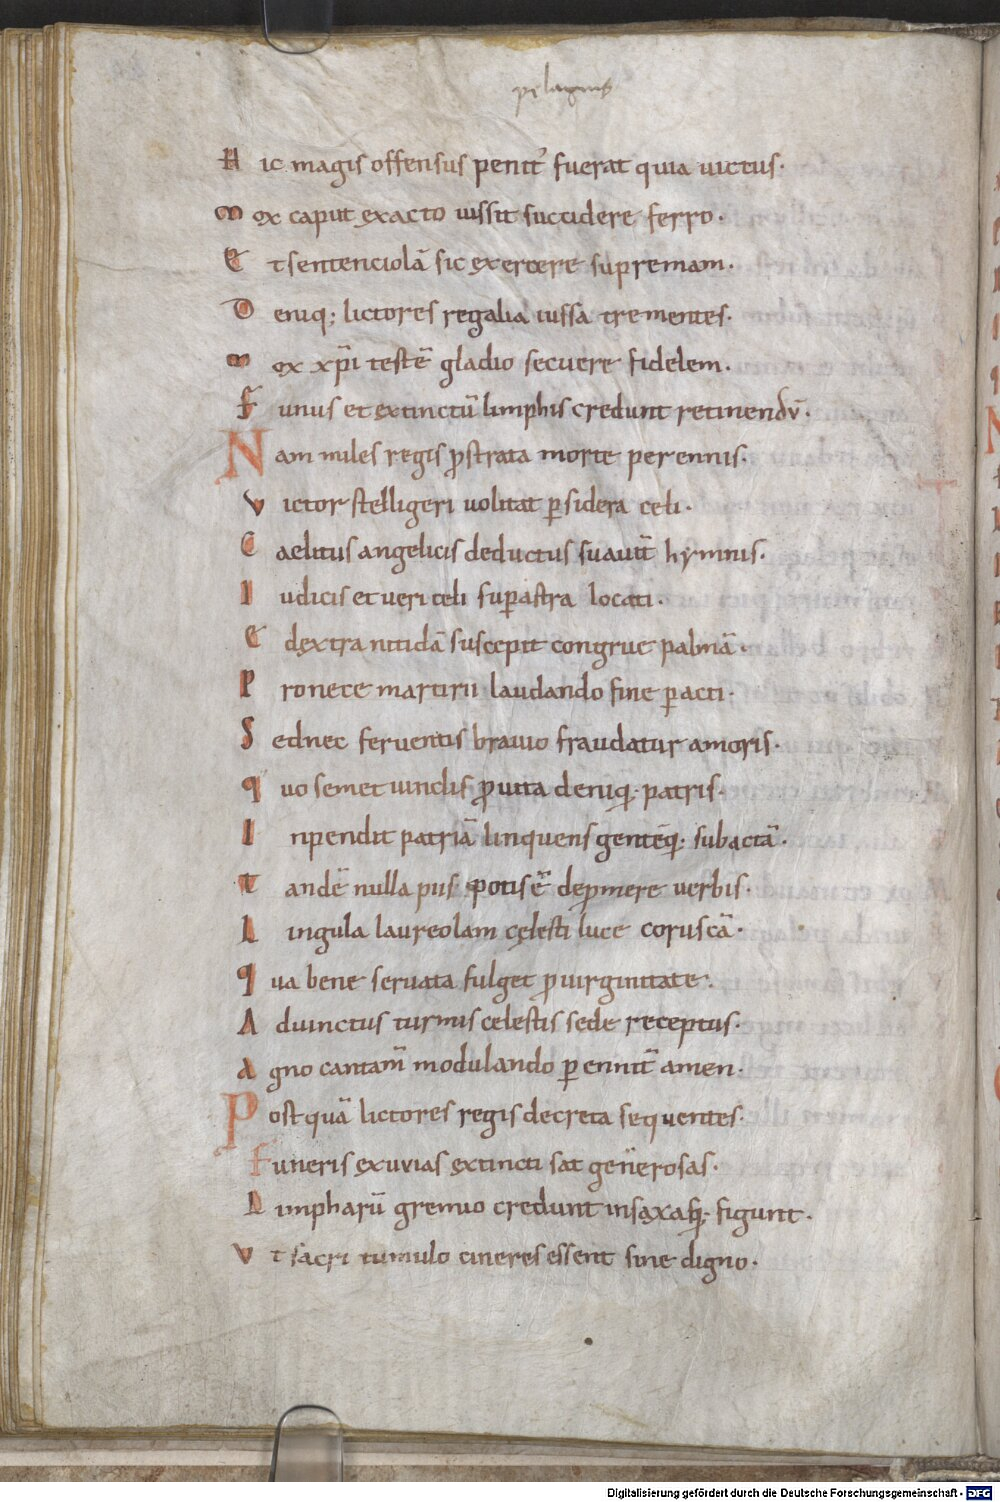 pelagius
Hic magis offensus penit᾽ fuerat quia uictus·
mox caput exacto iussit succidere ferro·
Et sentenciolā sic exercere supremam·
Deniq; lictores regalia iussa trementes·
mox xp̄i testē gladio secuere fidelem·
Funus et extinctū limphis credunt retinendv̄·
Nam miles regis ꝓstrata morte perennis·
Victor stelligeri uolitat ꝑ sidera celi·
Caelitus angelicis deductus suauit̄ hymnis·
Iudicis et ueri celi suꝑ astra locati·
E dextra nitidā suscepit congrue palmā·
Pro nece martirii laudando fine ꝑacti·
Sed nec feruentis brauio fraudatur amoris·
quo semet uinclis ꝓ uita deniq; patris·
Inpendit patriā linquens gentēq; subactā·
Tandē nulla pus potis ē depmere uerbis·
Lingula laureolam cęlesti luce coruscā·
qua bene seruata fulget ꝓ uirginitate·
Adiunctus turmis celestis sede receptus·
agno cantam̄ modulando ꝑennit̄ amen·
Postquā lictores regis decreta sequentes·
Funeris exuvias extincti sat generosas·
Limpharū gremio credunt in saxaq; figunt·
vt sacri tumulo cineres essent sine digno·
Digitalisierung gefördert durch die Deutsche Forschungsgemeinschaft - DFG